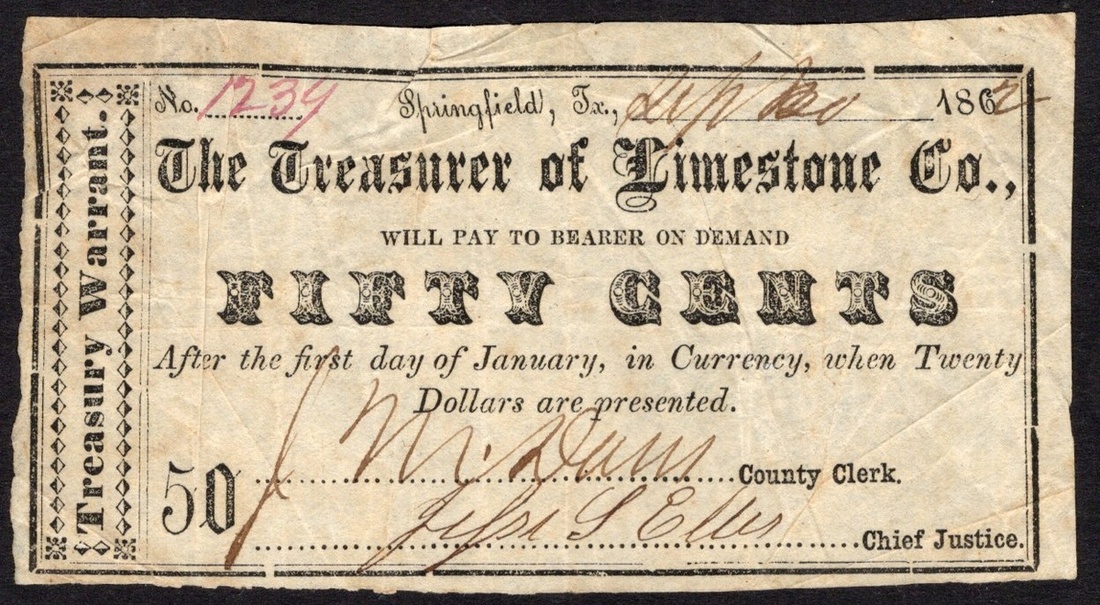 Treasury Warrant.
No. 1239 Springfield, Tx., Sep 20 1862
The Treasurer of Limestone Co.,
WILL PAY TO BEARER ON DEMAND
FIFTY CENTS
After the first day of January, in Currency, when Twenty
Dollars are presented.
50
County Clerk.
Chief Justice.